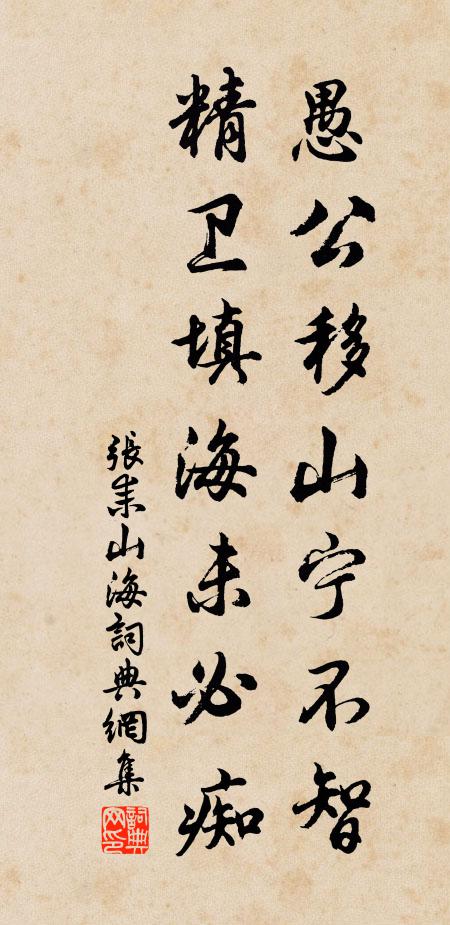 愚公移山宁不智
精卫填海未必痴
張耒山海詞典網集
詞典网印